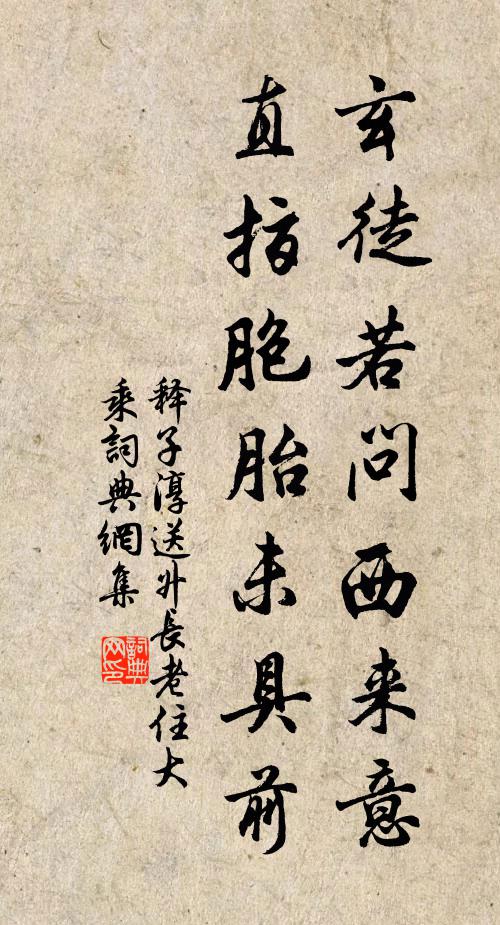 玄徒若问西来意
直指胞胎未具前
释子淳送升長老住大
乘詞典網集
詞典网印